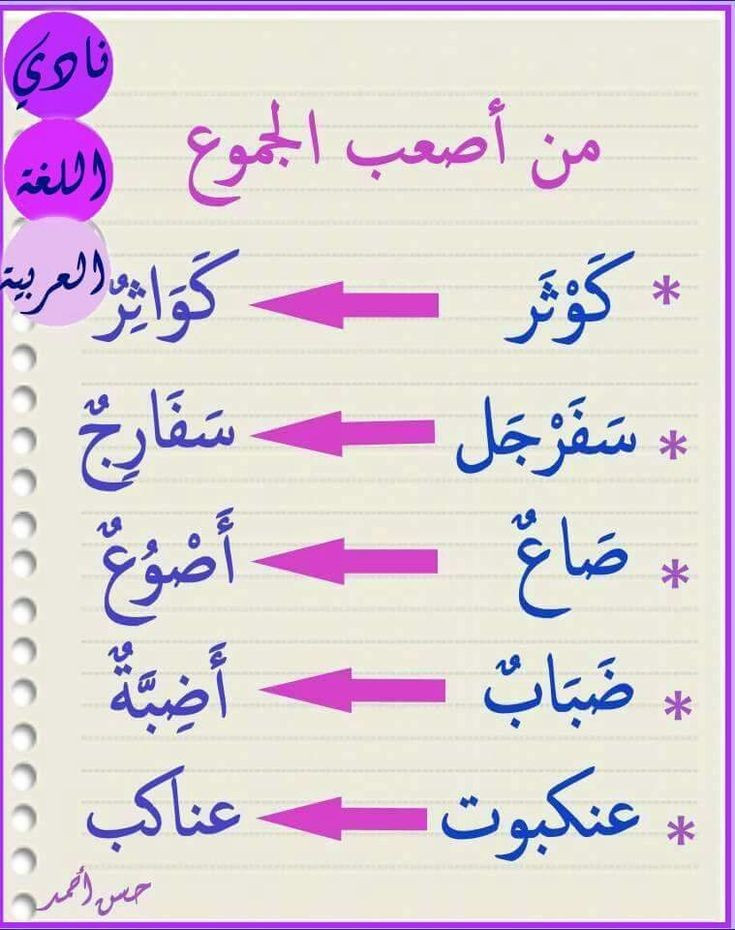 نادي
اللغة
العربية
من أصعب الجموع
* كَوْثَر كَوَاثِرٌ
* سَفَرْجَل سَفَارِجٌ
* صَاعٌ أَصْوُعٌ
* ضَبَابٌ أَضِبَّةٌ
* عنكبوت عناكب
حسن أحمد